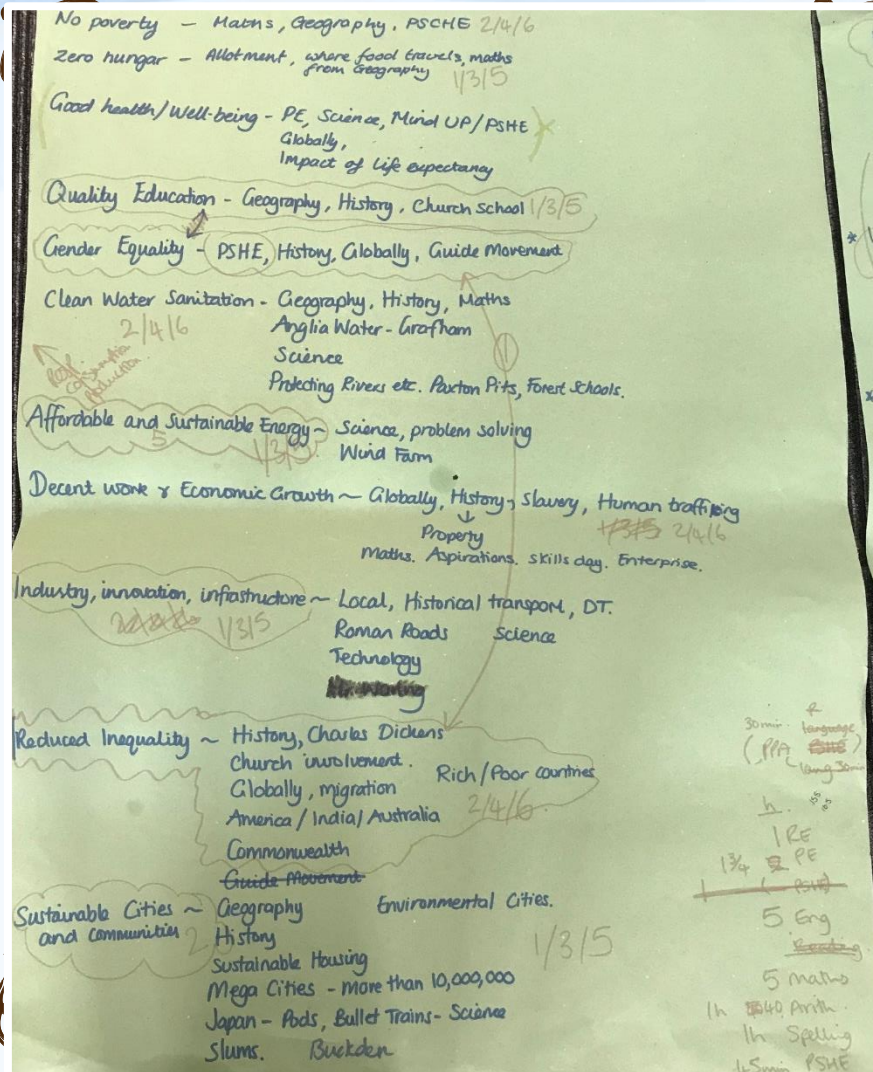 No poverty - Maths, Geography, PSCHE 2/4/6
Zero hungar - Allotment, where food travels, maths
from Geography
1/3/5
Good health/Well-being - PE, Science, Mind UP/PSHE
Globally,
Impact of life expectancy
Quality Education - Geography, History, Church School 1/3/5
Gender Equality - PSHE, History, Globally, Guide Movement
Clean Water Sanitation - Geography, History, Maths
2/4/6
Anglia Water - Grafham
Science
Protecting Rivers etc. Paxton Pits, Forest Schools.
Affordable and Sustainable Energy ~ Science, problem solving
5
1/3/5
Wind Farm
Decent work & Economic Growth ~ Globally, History, Slavery, Human traffiking
1/3/5 2/4/6
↓
Property
Maths. Aspirations. Skills day. Enterprise.
Industry, innovation, infrastructure ~ Local, Historical transport, DT.
1/3/5
Roman Roads Science
Technology
Reduced Inequality ~ History, Charles Dickens
Church involvement.
Rich/Poor countries
Globally, migration
2/4/6
America/India/Australia
Commonwealth
Guide Movement
Sustainable Cities ~ Geography Environmental Cities.
and communities 2 History
1/3/5
Sustainable Housing
Mega Cities - More than 10,000,000
Japan - Pods, Bullet Trains - Science
Slums. Buckden
R
30min. language
(PPA PSHE)
lang 30min
h.
1 RE
1¾ PE
1 (PSHE)
5 Eng
Reading
5 maths
1h 40 Arith.
1h Spelling
45min PSHE